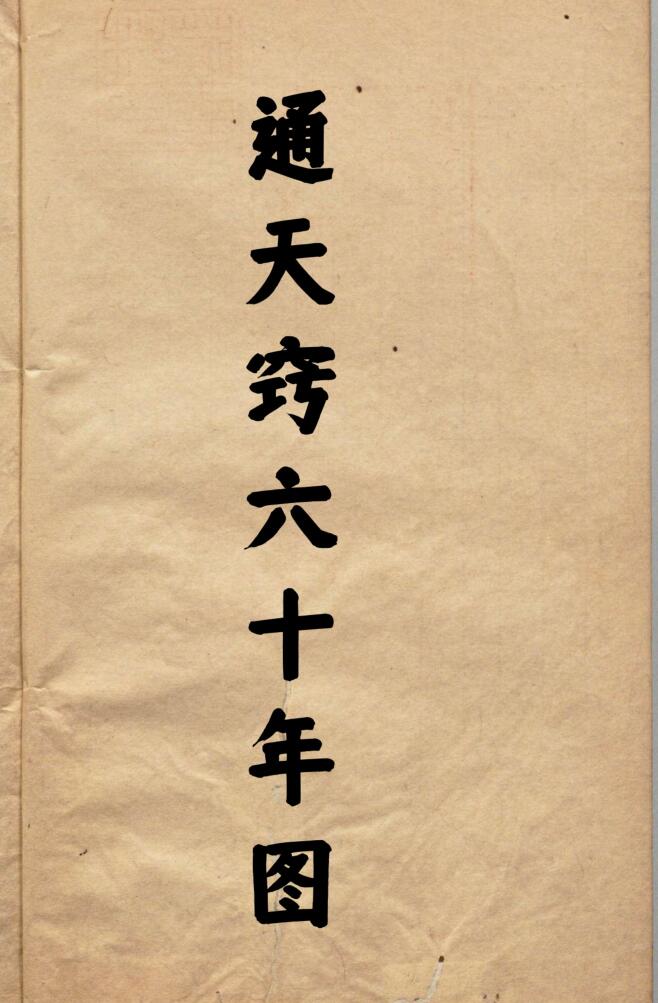 通天窍六十年图